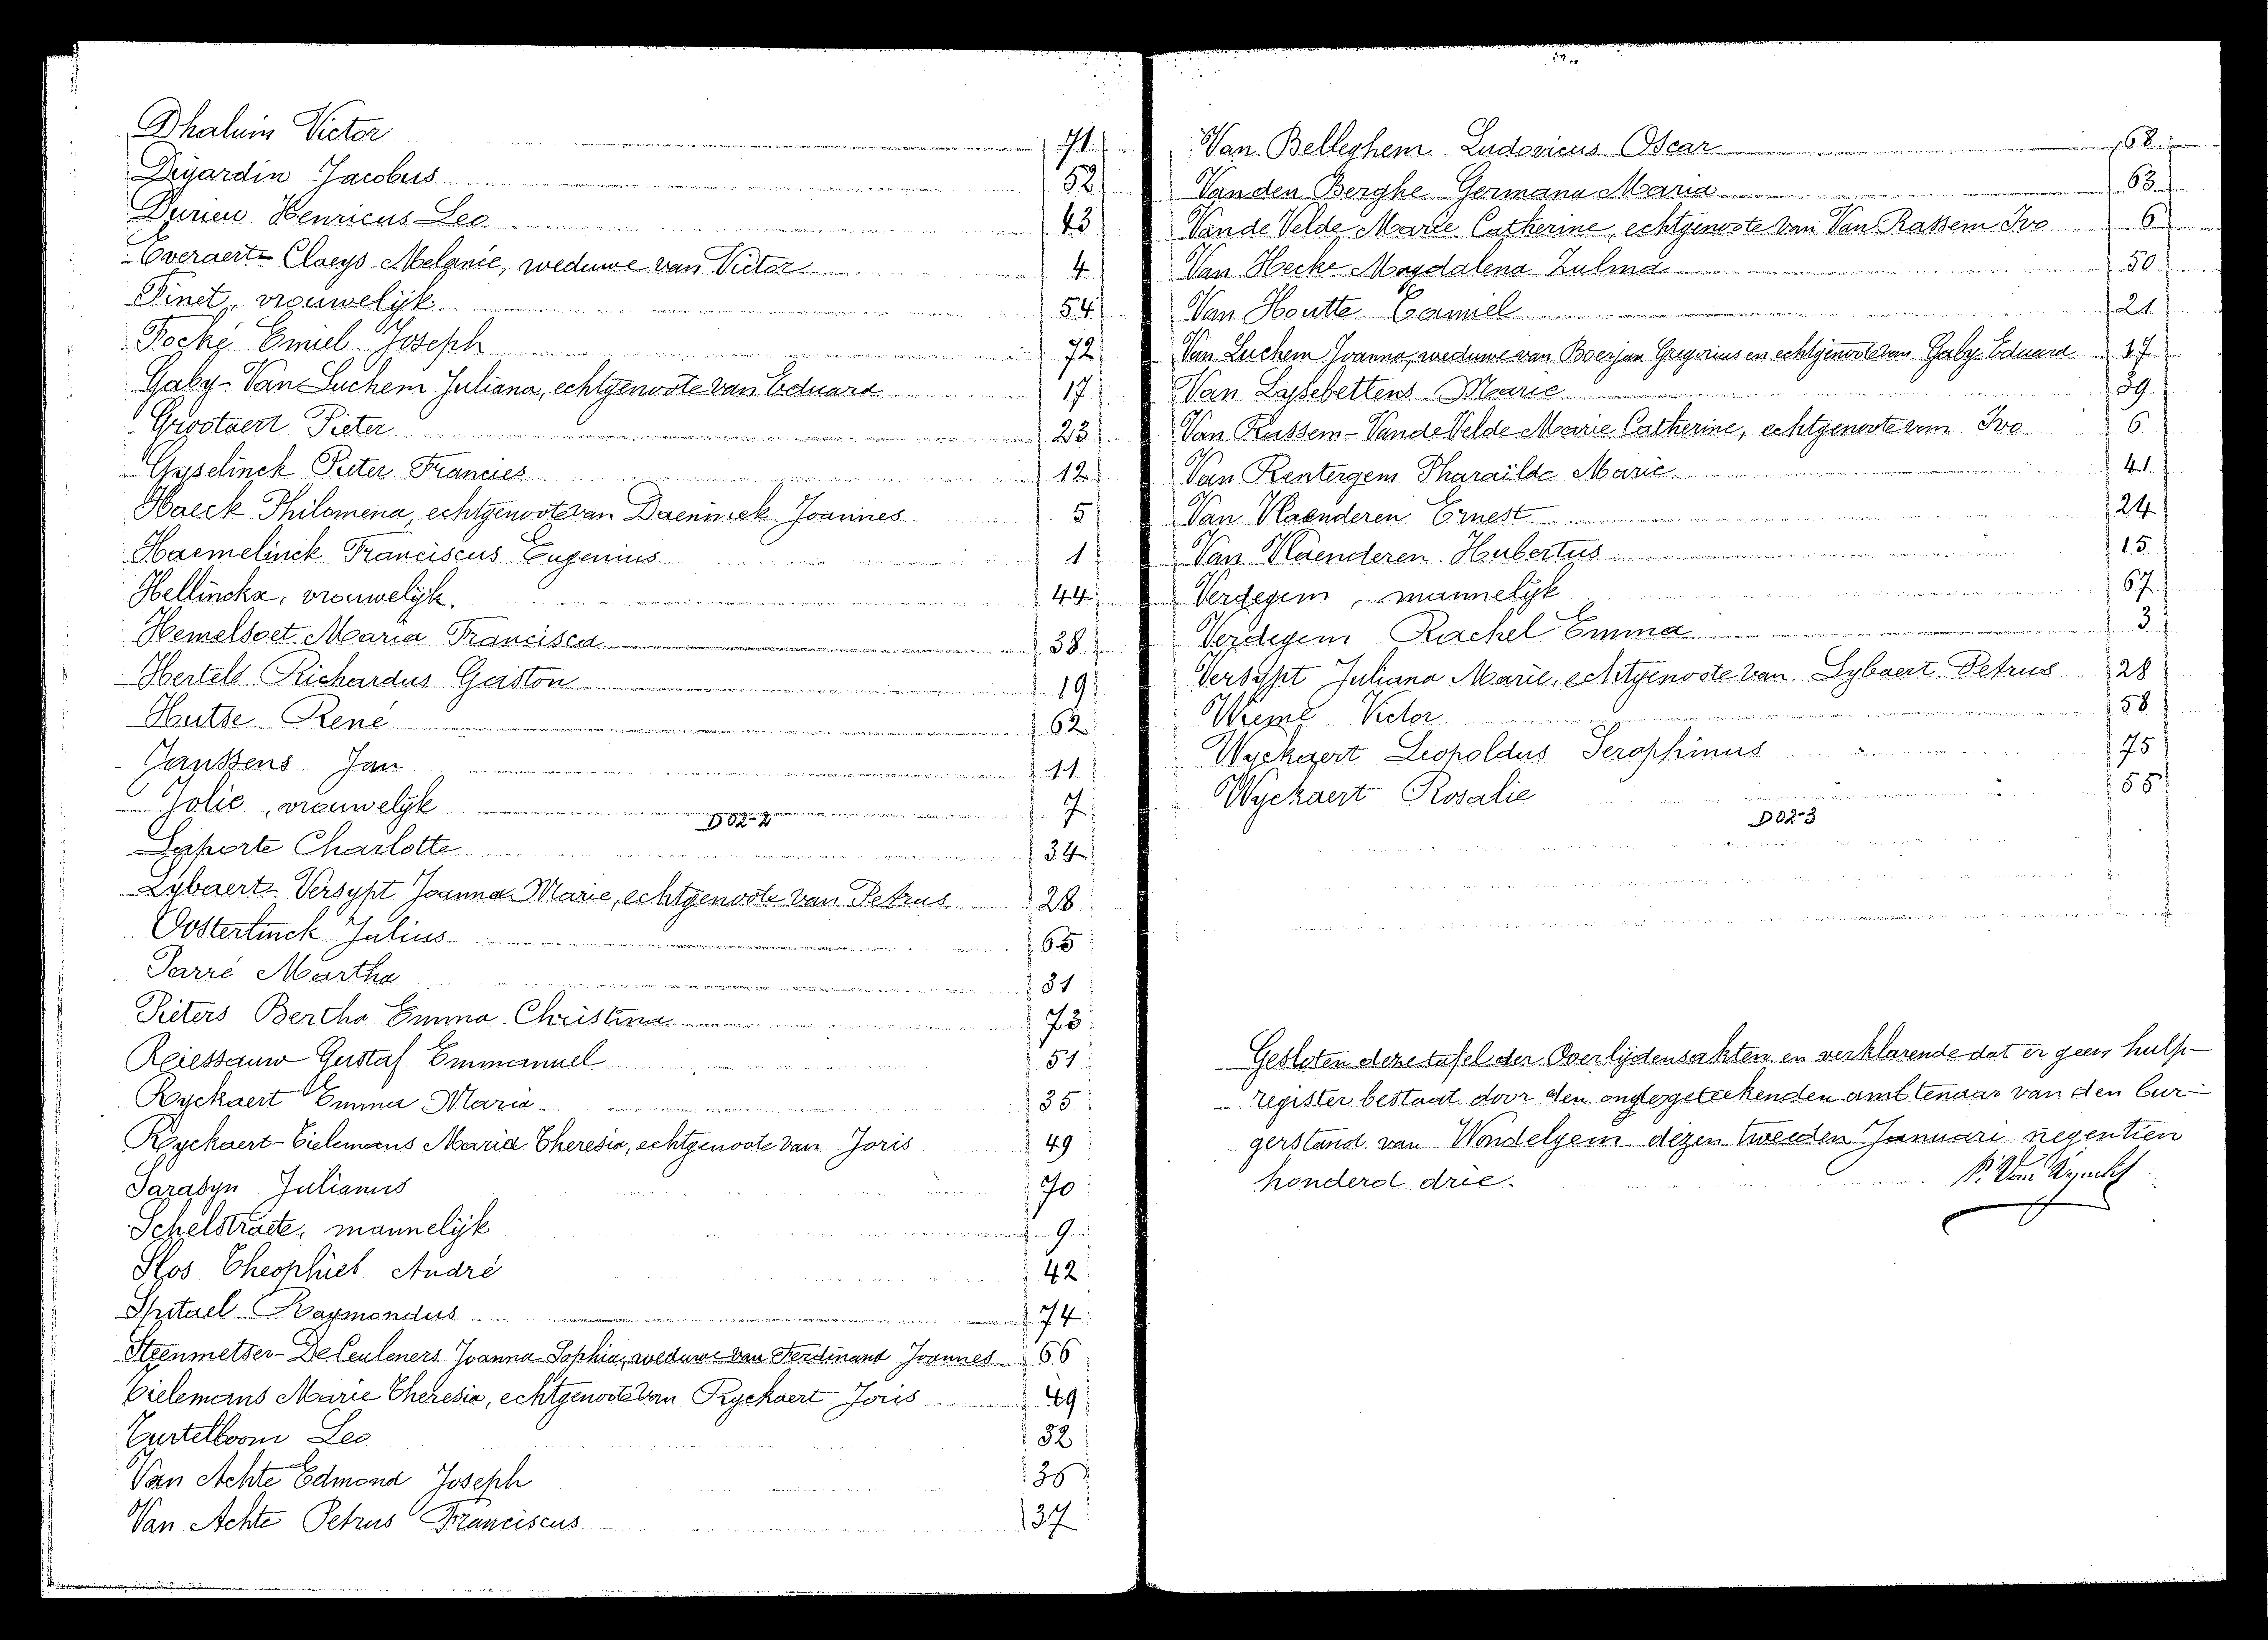 Dhaluin Victor 71
Dujardin Jacobus 52
Durieu Henricus Leo 43
Overaert-Claeys Melanie, weduwe van Victor 4
Finet, vrouwelijk 54
Focké Emiel Joseph 72
Gaby-Van Luchem Juliana, echtgenoote van Eduard 17
Grootaert Pieter 23
Gyselinck Pieter Francies 12
Haeck Philomena, echtgenoote van Daeninck Joannes 5
Haemelinck Franciscus Eugenius 1
Hellinckx, vrouwelijk. 44
Hemelsoet Maria Francisca 38
Hertels Richardus Gaston 19
Hutse René 62
Janssens Jan 11
Jolie, vrouwelijk 7
D02-2
Laporte Charlotte 34
Lybaert-Versypt Joanna Marie, echtgenoote van Petrus 28
Oosterlinck Julius 65
Parré Martha 31
Pieters Bertha Emma Christina 73
Reiessauw Gustaf Emmanuel 51
Ryckaert Emma Maria 35
Ryckaert-Tielemans Maria Theresia, echtgenoote van Joris 49
Sarasyn Julianus 70
Schelstraete, mannelijk 9
Slos Theophiel André 42
Spitael Raymondus 74
Steenmetser-De Ceuleners Joanna Sophia, weduwe van Ferdinand Joannes 66
Tielemans Marie Theresia, echtgenoote van Ryckaert Joris 49
Turtelboom Leo 32
Van Achte Edmond Joseph 36
Van Achte Petrus Franciscus 37
Van Belleghem Ludovicus Oscar 68
Vanden Berghe Germana Maria 63
Vande Velde Marie Catherine, echtgenoote van Van Rassem Ivo 6
Van Hecke Magdalena Zulma 50
Van Houtte Camiel 21
Van Luchem Joanna, weduwe van Boerjan Gregorius en echtgenoote van Gaby Eduard 17
Van Lysebettens Marie 39
Van Rassem-Vande Velde Marie Catherine, echtgenoote van Ivo 6
Van Rentergem Pharaïlde Marie 41
Van Vlaenderen Ernest 24
Van Vlaenderen Hubertus 15
Verdegem, mannelijk 67
Verdegem Rachel Emma 3
Versypt Juliana Marie, echtgenoote van Lybaert Petrus 28
Wieme Victor 58
Wyckaert Leopoldus Serophinus 75
Wyckaert Rosalie 55
D02-3
Gesloten deze tafel der Overlijdensakten en verklarende dat er geen hulp-
register bestaat door den ondergeteekenden ambtenaar van den bur-
gerstand van Wondelgem dezen tweeden Januari negentien
honderd drie.